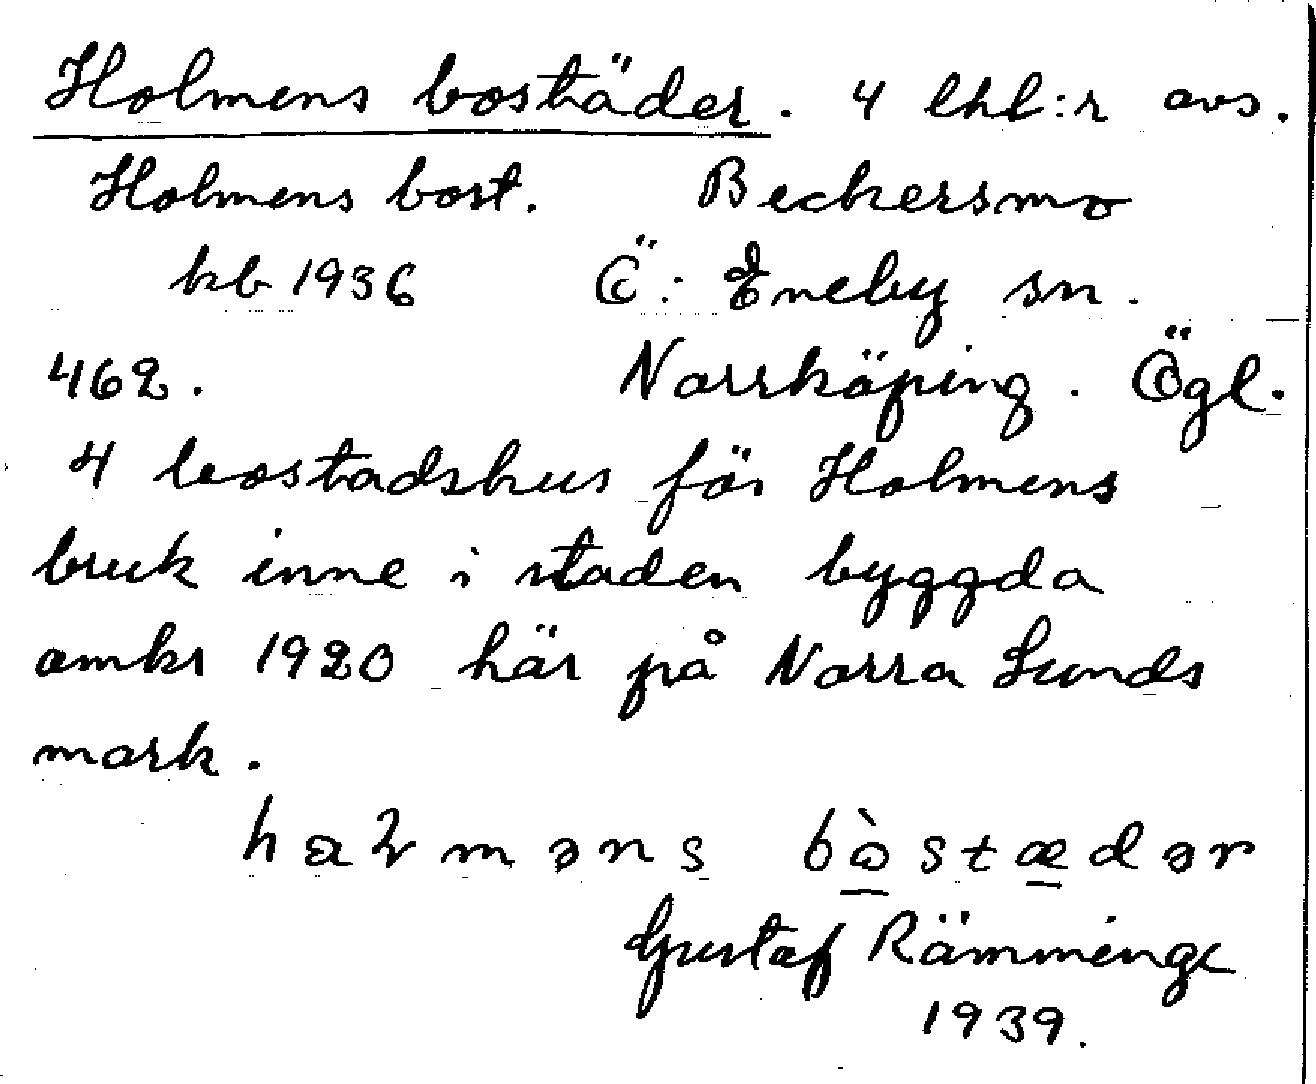 Holmens bostäder. 4 lhl:r avs.
Holmens bost. Beckersmo
kb 1936 Ö: Eneby sn.
462. Norrköping. Ögl.
4 bostadshus för Holmens
bruk inne i staden byggda
omkr 1920 här på Norra Lunds
mark.
Gustaf Rämminge
1939.